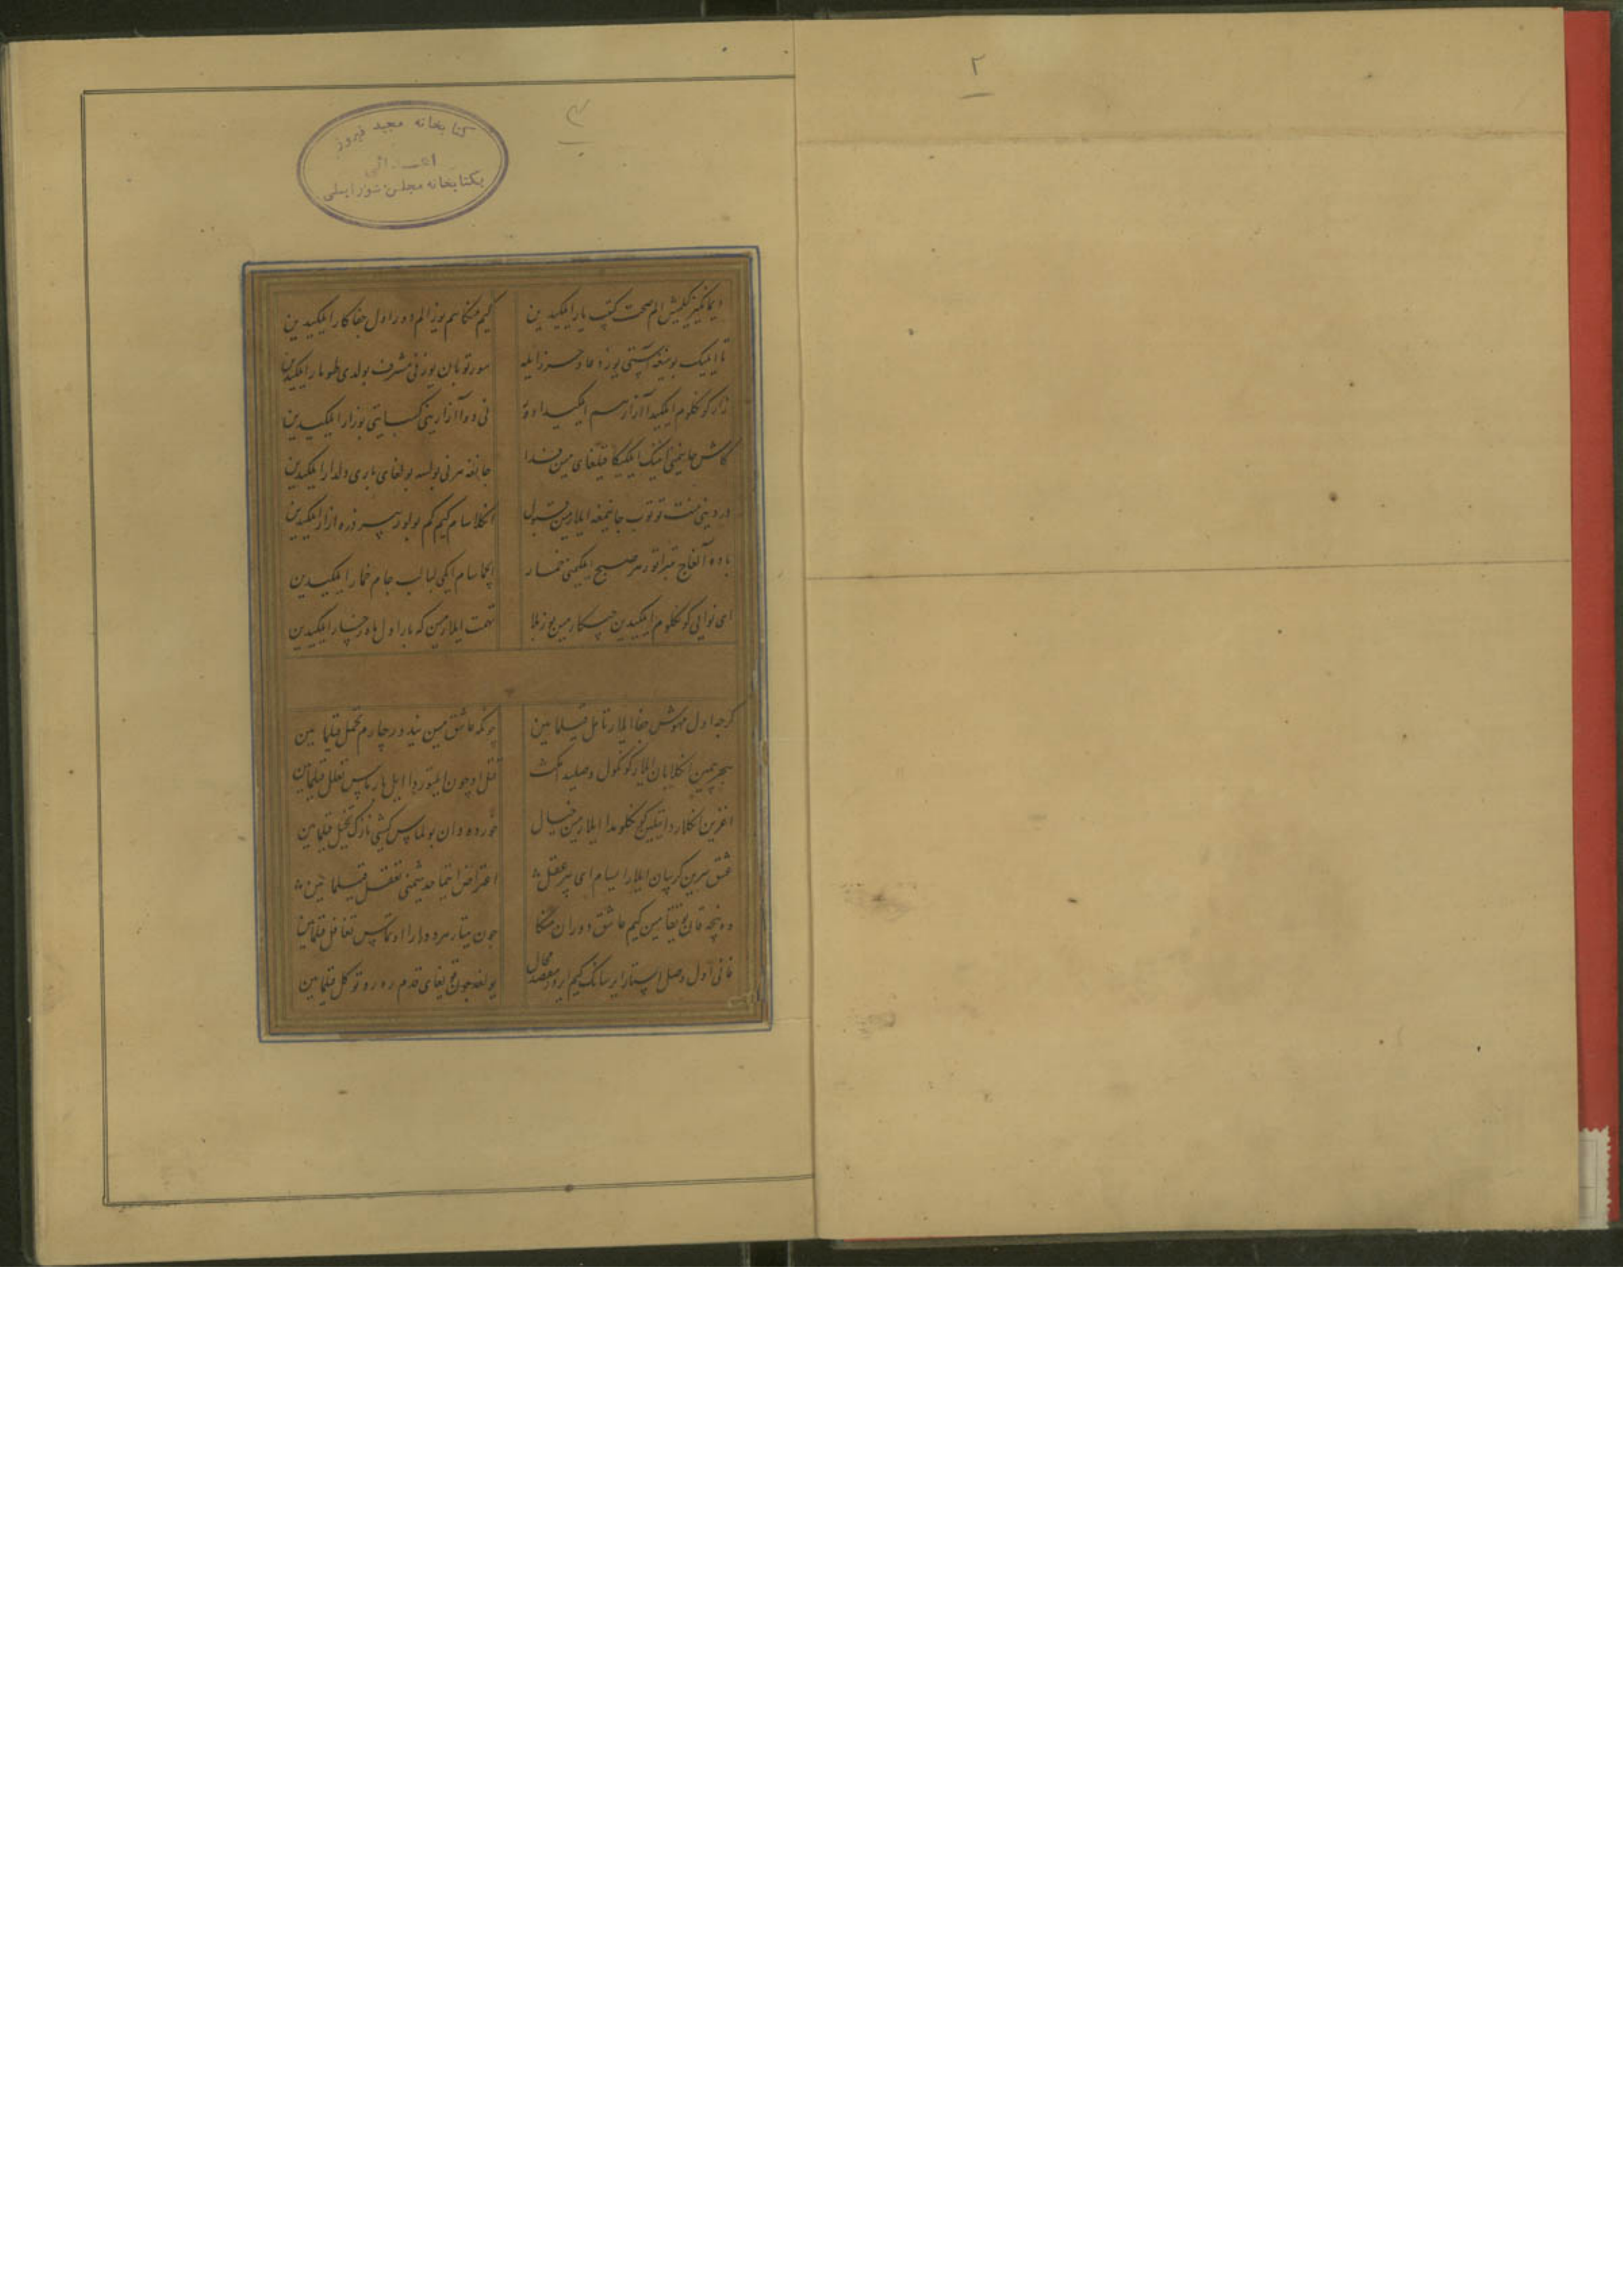 ۲
کتابخانه مجید فیروز
اهدائی
بکتابخانه مجلس شورایملی
دیمانکیز کیلمیش الم صحت کیتیب یار ایلیکیدین
کیم منکا هم یوز الم دور اول جفاکار ایلیکیدین
تا ایلیک بوینیغه آستی یوز دعا و حرز ایله
سورتوبان یوزنی مشرف بولدی طومار ایلیکیدین
زار کونکلوم ایلیکیدا آزار هم ایلیکیدا
نی دوا آزارینی کسبایتی بو زار ایلیکیدین
کاش جانیمنی آنینک ایلیکیکا قیلغای مین فدا
جانغه هر نی بولسه بولغای باری دلدار ایلیکیدین
دردینی منت توتوب جانیمغه ایلارمین قبول
انکلاسام کیم کم بولور بیر ذره آزار ایلیکیدین
باده آلغاج تیتراتور هر صبح ایلیکیمنی خمار
ایچاسام ایکی لبالب جام خمار ایلیکیدین
ای نوایی کونکلوم ایلیکیدین چیکارمین یوز بلا
تهمت ایلارمین که بار اول ماه رخسار ایلیکیدین
کرچه اول مهوش جفا ایلار تامل قیلمامین
چونکه عاشق مین نیدور چارم تحمل قیلمامین
هجر بیمین انکلابان ایلار کونکول وصلیدا مکث
قتل اوچون ایلتوردا ایل بارماس تعلل قیلمامین
اغزین انکلاردا تیلیین کونکلومدا ایلارمین خیال
خورده دان بولماس کیشی نازک تخیل قیلمامین
عشق سرین کر بیان ایلار ایسام ای پیر عقل
اعتراض ایتما حدیثیمنی تعقل قیلمامین
وه نیچه قان یوتقامین کیم عاشق دوران منکا
چون تیتار هر دور ارا اوتماس تغافل قیلمامین
فانی اول وصل ایستار ایرسانک کیم ایرور مقصد محال
یولغه چون قویغای قدم رهرو توکل قیلمامین